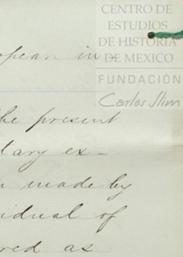 CENTRO DE
ESTUDIOS
DE HISTORIA
DE MEXICO
FUNDACIÓN
Carlos Slim
opean in-
he present
tary ex-
made by
idual of
red as